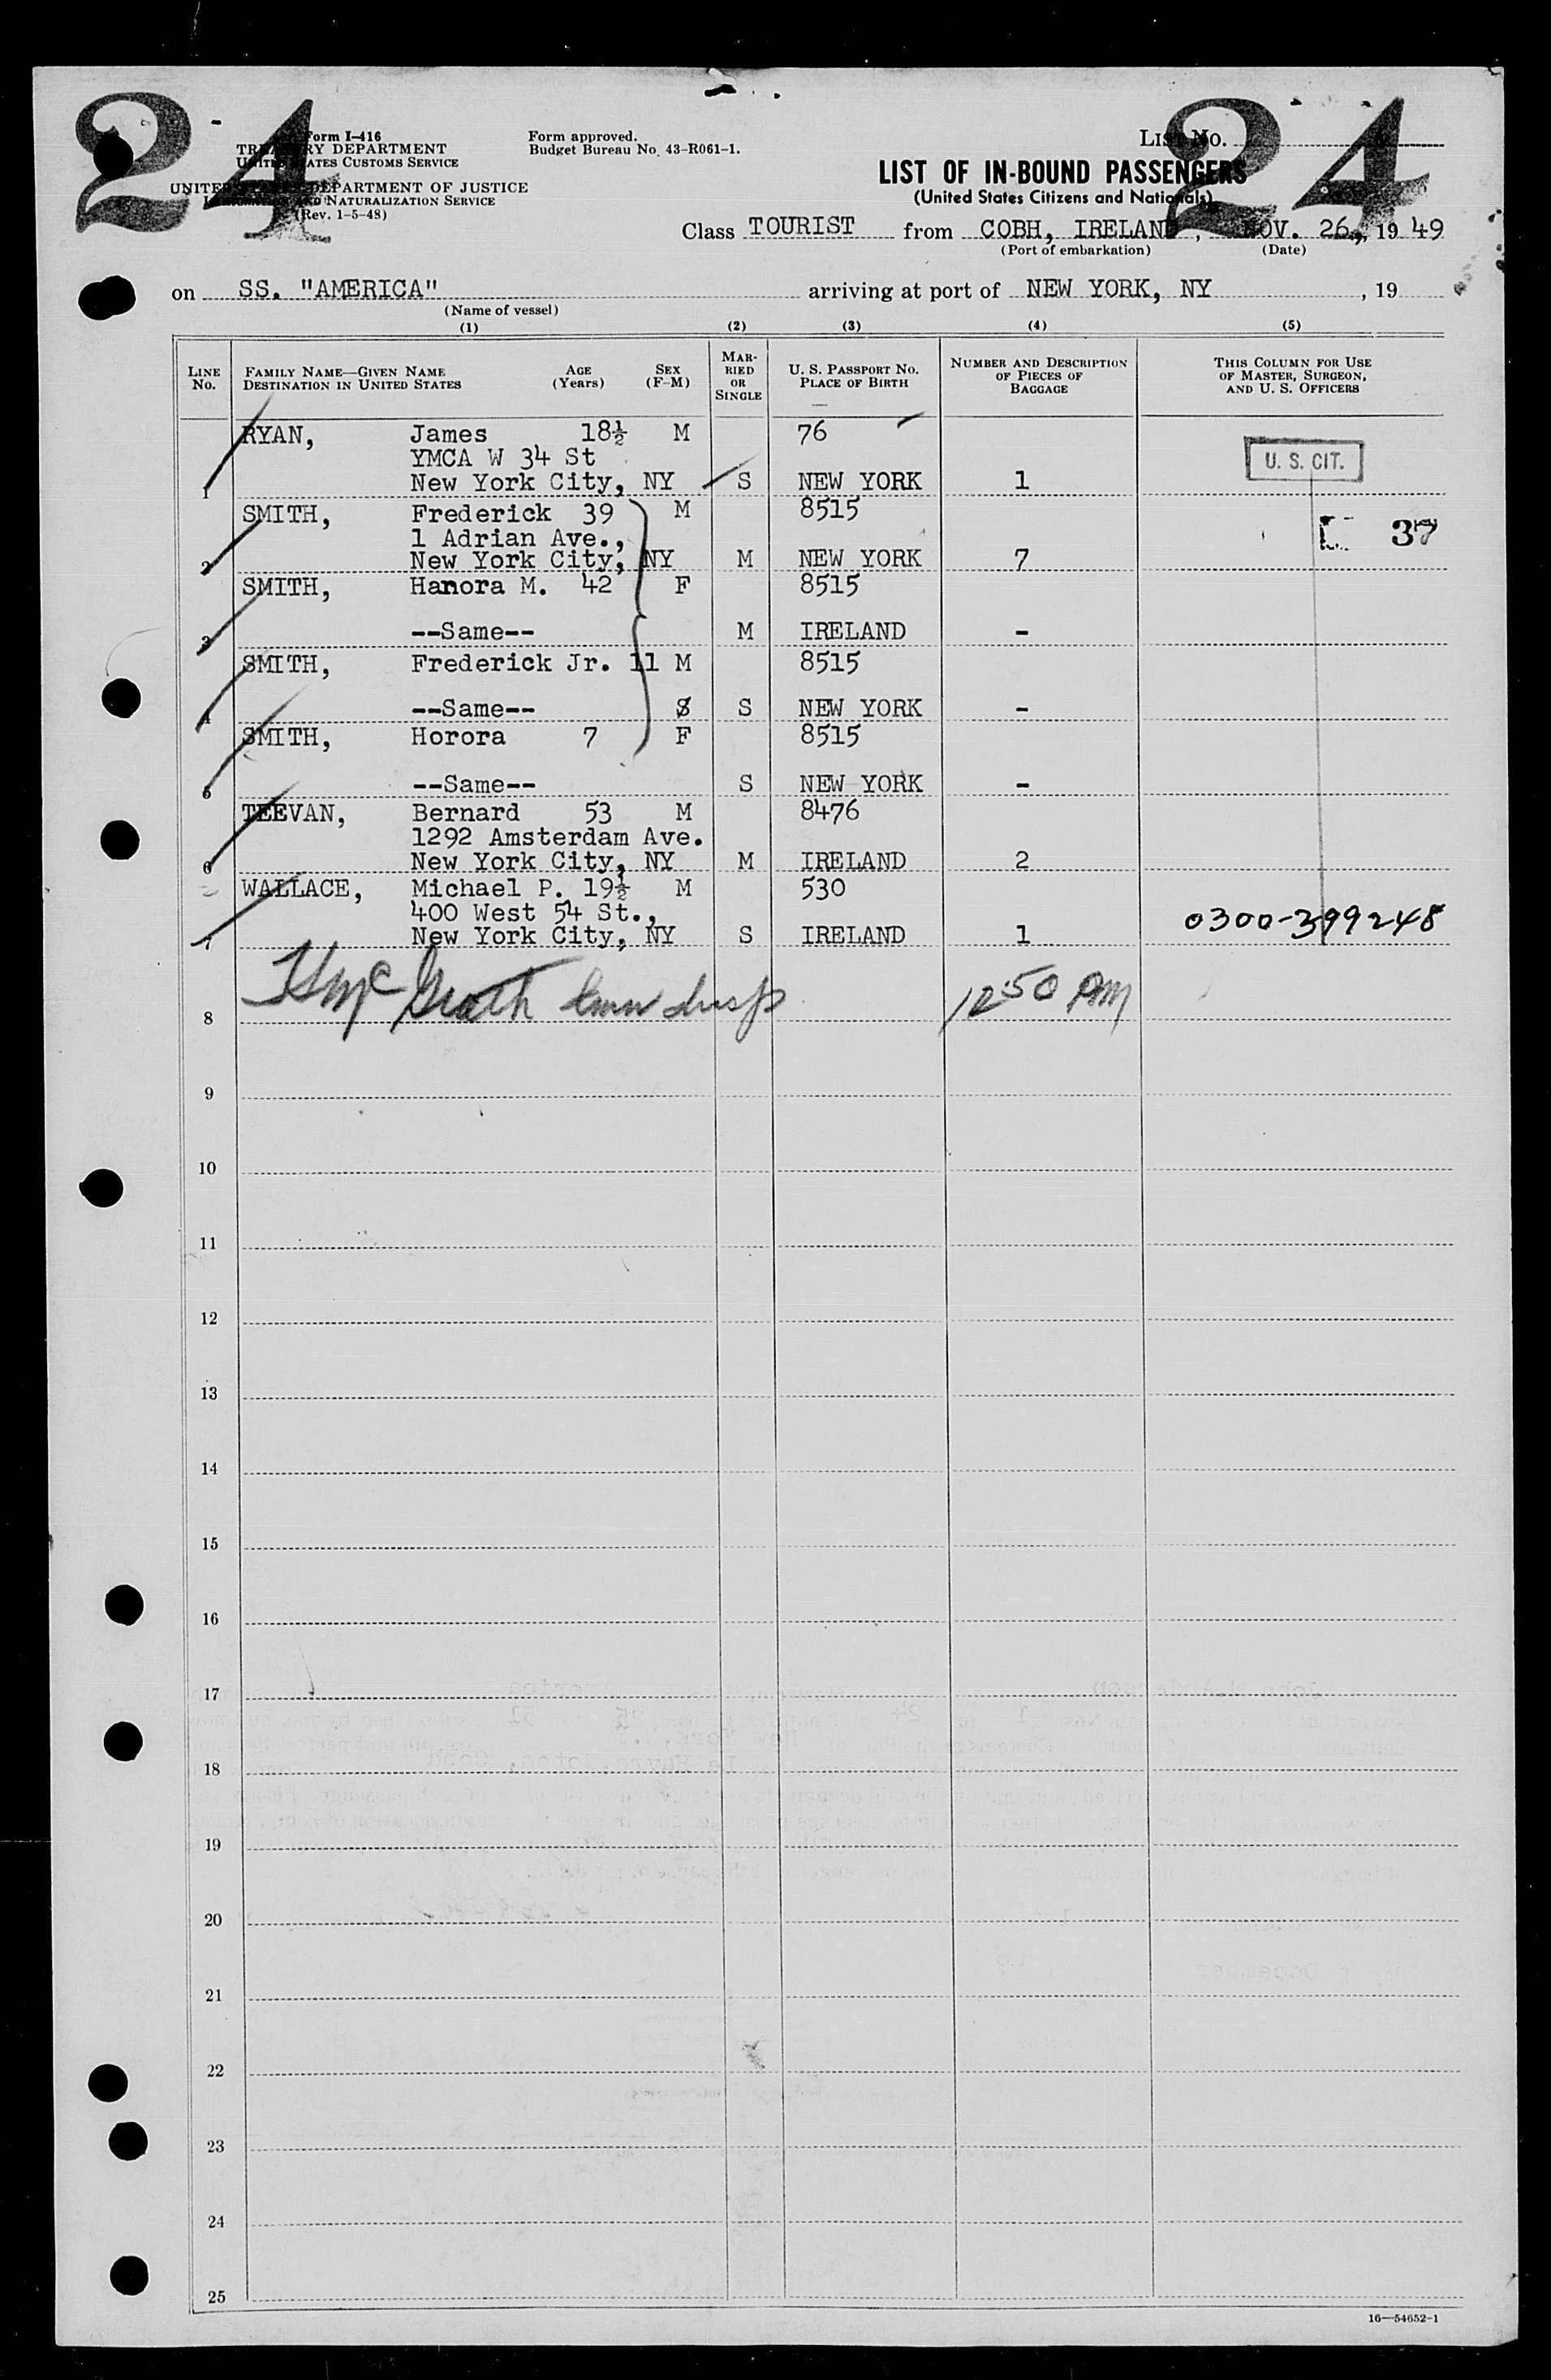 24
24
Form I-416
TREASURY DEPARTMENT
UNITED STATES CUSTOMS SERVICE
UNITED STATES DEPARTMENT OF JUSTICE
IMMIGRATION AND NATURALIZATION SERVICE
(Rev. 1-5-48)
Form approved.
Budget Bureau No. 43-R061-1.
LIST NO.
LIST OF IN-BOUND PASSENGERS
(United States Citizens and Nationals)
Class TOURIST from COBH, IRELAND, NOV. 26, 19 49
(Port of embarkation) (Date)
on SS. "AMERICA" arriving at port of NEW YORK, NY, 19
(Name of vessel)
(1) (2) (3) (4) (5)
LINE No. FAMILY NAME—GIVEN NAME DESTINATION IN UNITED STATES AGE (Years) SEX (F-M) MARRIED OR SINGLE U. S. PASSPORT NO. PLACE OF BIRTH NUMBER AND DESCRIPTION OF PIECES OF BAGGAGE THIS COLUMN FOR USE OF MASTER, SURGEON, AND U. S. OFFICERS
RYAN, James 18½ M 76
YMCA W 34 St U. S. CIT.
1 New York City, NY S NEW YORK 1
SMITH, Frederick 39 M 8515
1 Adrian Ave., 37
2 New York City, NY M NEW YORK 7
SMITH, Hanora M. 42 F 8515
3 --Same-- M IRELAND -
SMITH, Frederick Jr. 11 M 8515
4 --Same-- S S NEW YORK -
SMITH, Horora 7 F 8515
5 --Same-- S NEW YORK -
TEEVAN, Bernard 53 M 8476
1292 Amsterdam Ave.
6 New York City, NY M IRELAND 2
WALLACE, Michael P. 19½ M 530
400 West 54 St., 0300-399248
7 New York City, NY S IRELAND 1
8 McGrath Imm Insp 12 50 PM
9
10
11
12
13
14
15
16
17
18
19
20
21
22
23
24
25
16—54652-1